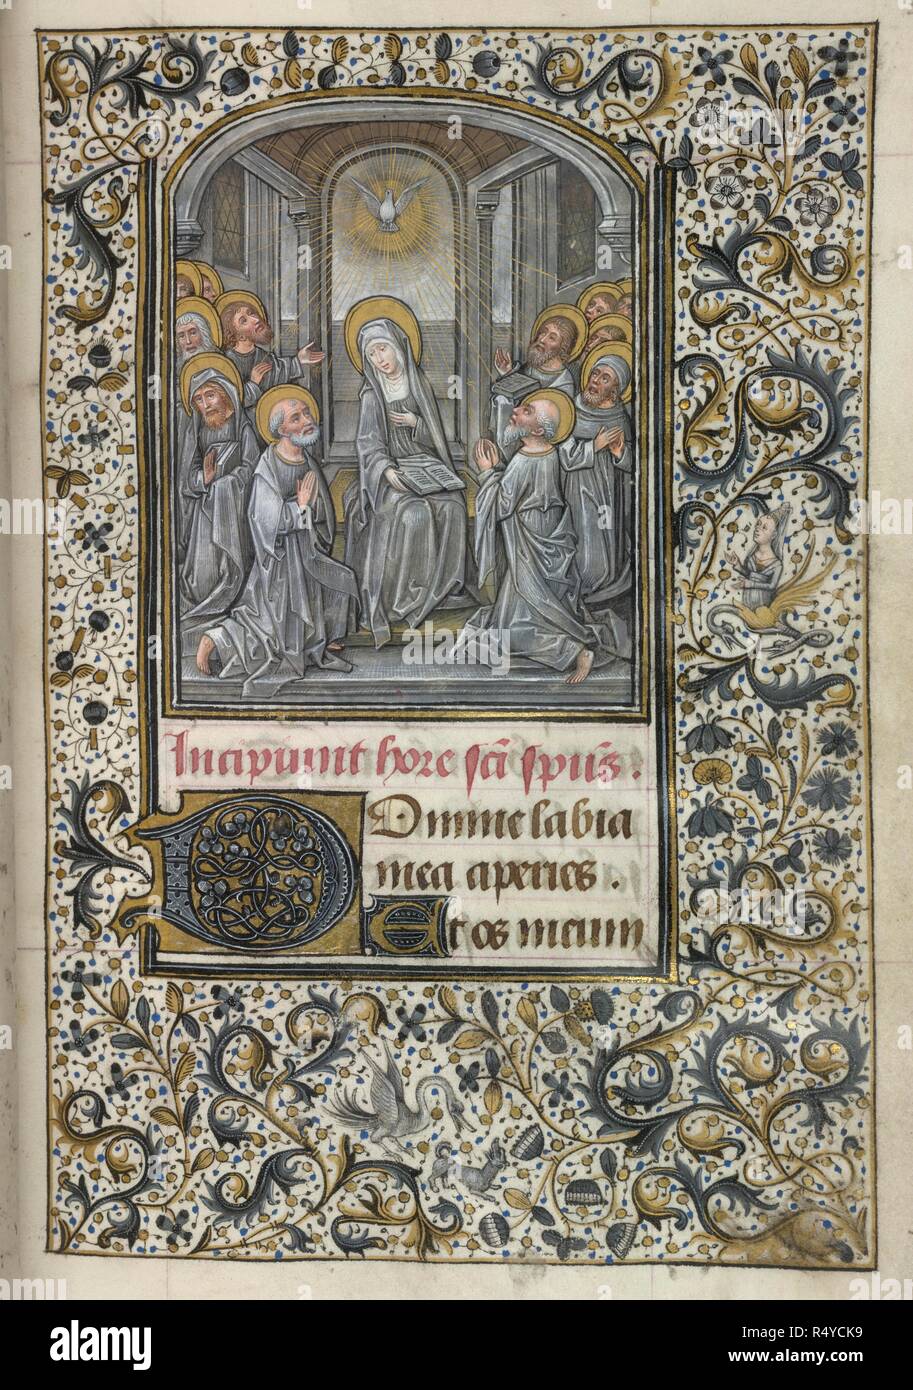 Incipiunt hore sci spus.
Domine labia
mea aperies.
Et os meum
alamy
a
alamy stock photo
R4YCK9
www.alamy.com